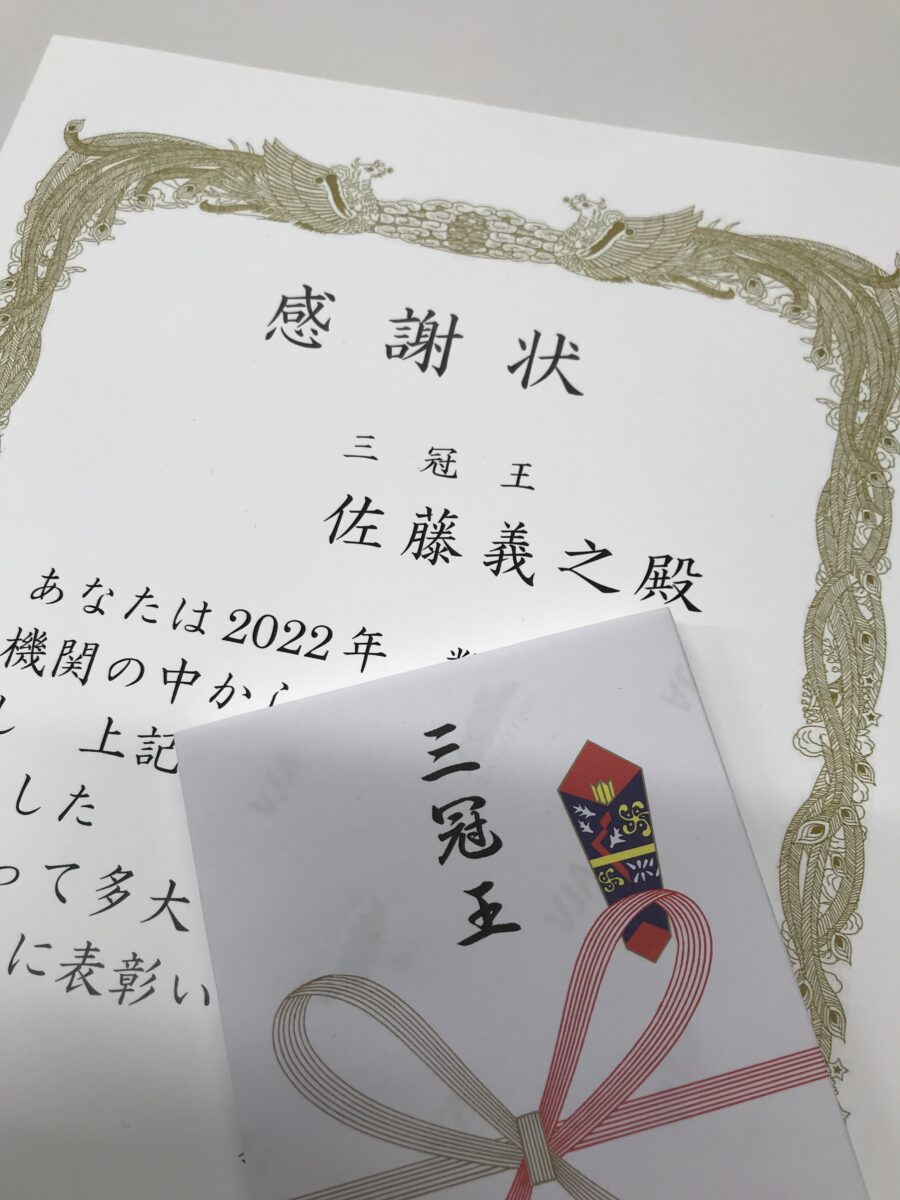 感謝状
三冠王
佐藤義之殿
あなたは2022年
機関の中から
上記
した
って多大
に表彰い
三冠王